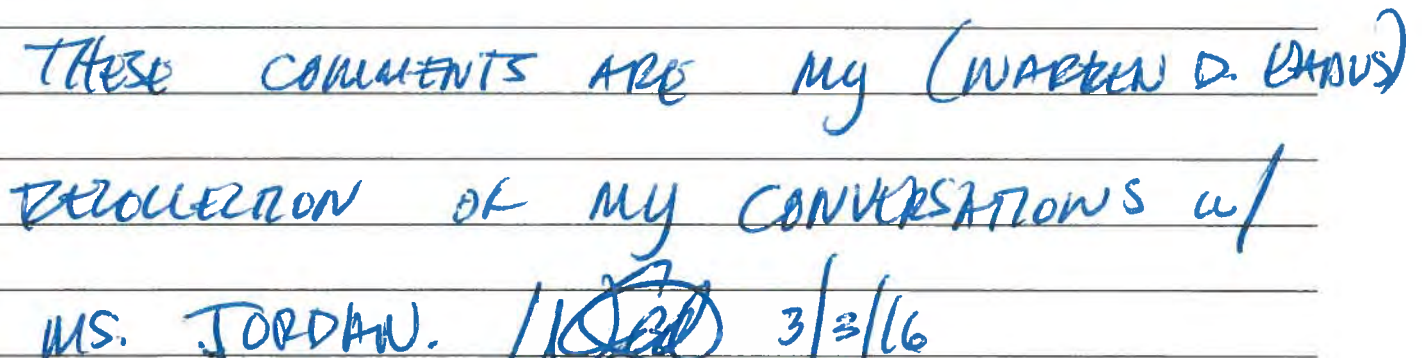 THESE COMMENTS ARE MY (WARREN D.
RECOLLECTION OF MY CONVERSATIONS w/
MS. JORDAN. 3/3/16